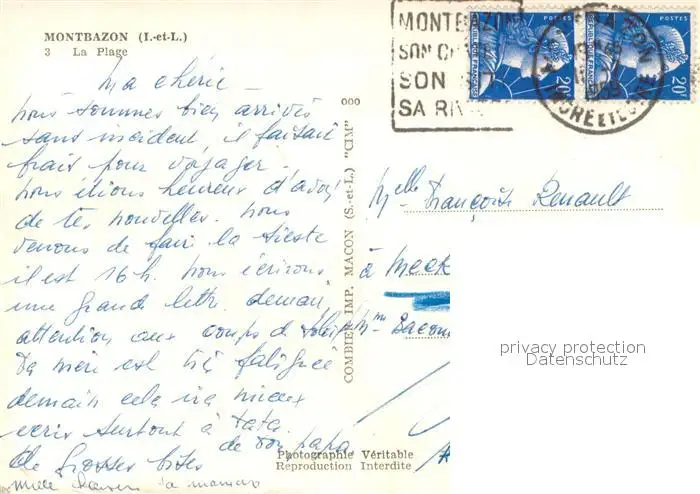 MONTBAZON (I.-et-L.)
3 La Plage
MONTBAZON
SON
SON
SA
POSTES
REPUBLIQUE FRANÇAISE
20F
POSTES
REPUBLIQUE FRANÇAISE
20F
INDRE ET LOIRE
Ma chérie —
nous sommes bien arrivés
sans incident, il faisait
frais pour voyager.
nous étions heureux d'avoir
de tes nouvelles. nous
venons de faire la sieste
il est 16h. nous écrirons
une grande lettre demain,
attention aux coups de soleil
Ta mère est très fatiguée
demain cela ira mieux
écris surtout à Tata.
de ton papa
de grosses bises
Mille ta maman
000
COMBIER IMP. MACON (S.-et-L.) "CIM"
Melle Françoise Renault
à Meek
Mme Bacom
privacy protection
Datenschutz
Photographie Véritable
Reproduction Interdite